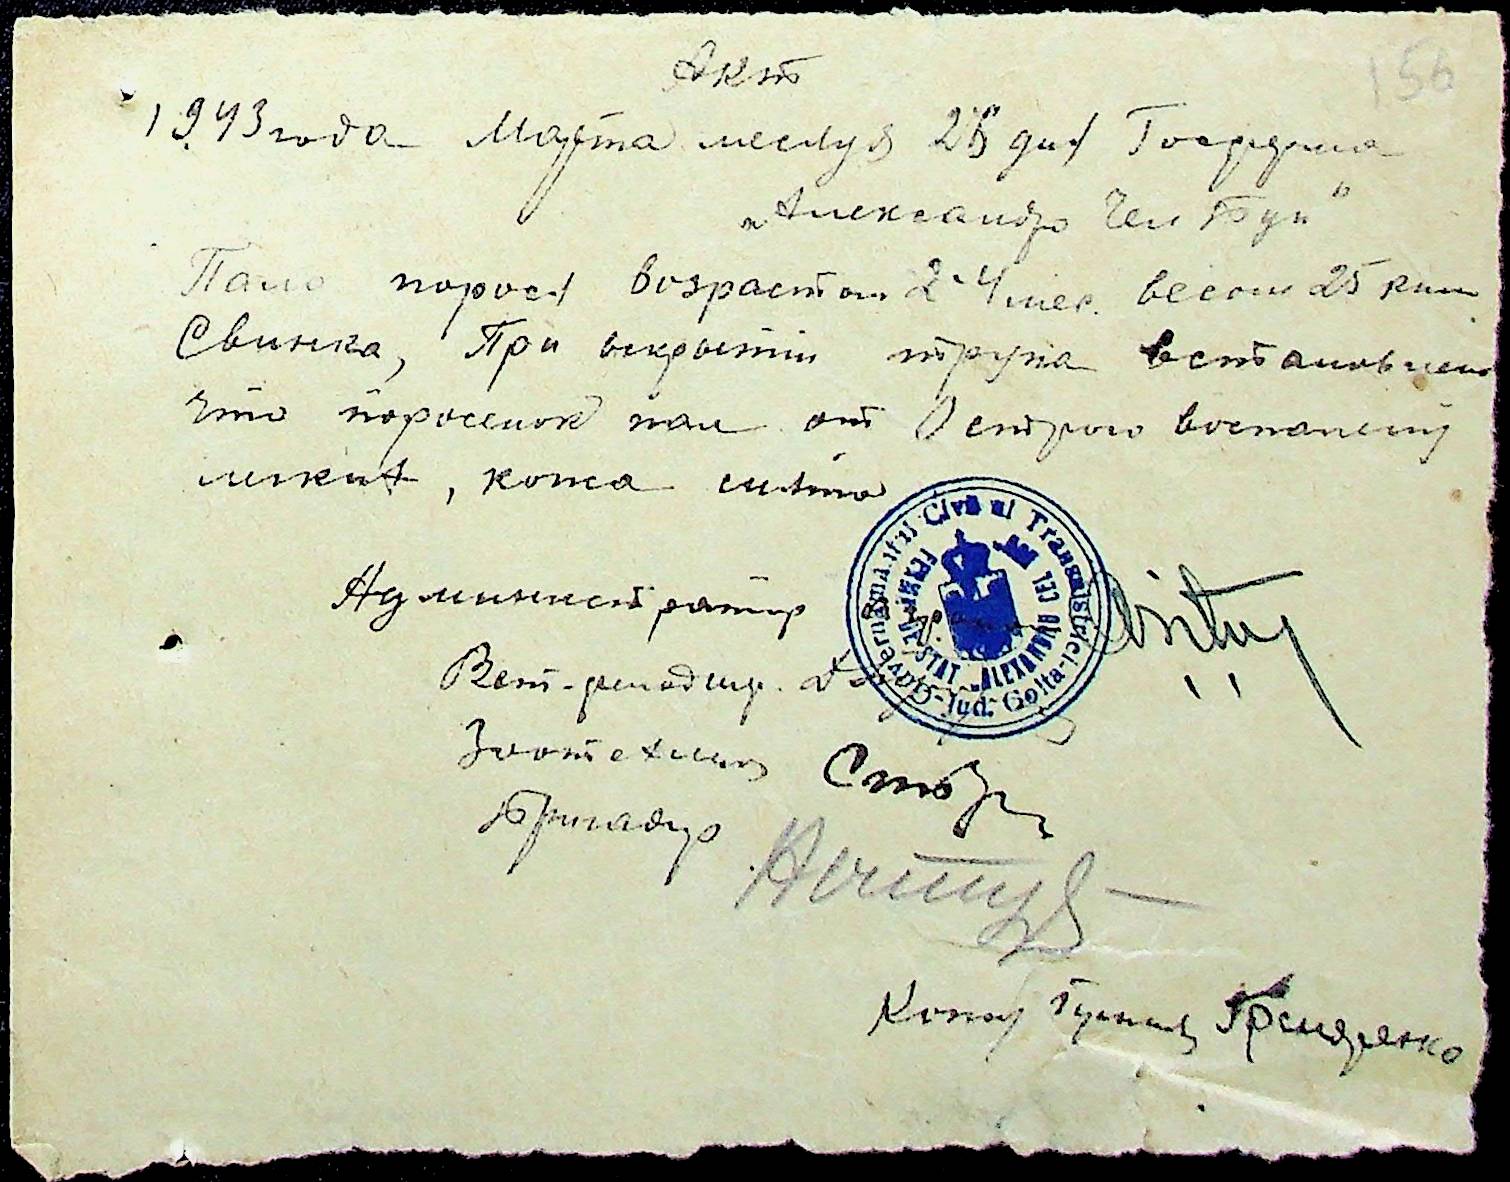 156
Акт
1943 года Марта месяца дня Госферма
„Александро Чел Бун"
Пало порося возрастом 2-4 мес. весом 25 клм
Свинка, При вскрытии трупа встановлено
что поросенок пал от Острого воспаления
легких, кожа снята
Администратор
Вет-фельдшер.
Зоотехник
Бригадир
Кожу Принял Гренденко
Guvernământul Civil al Transnistriei - Jud. Golta
FERMA DE STAT „ALEXANDRU CEL BUN"